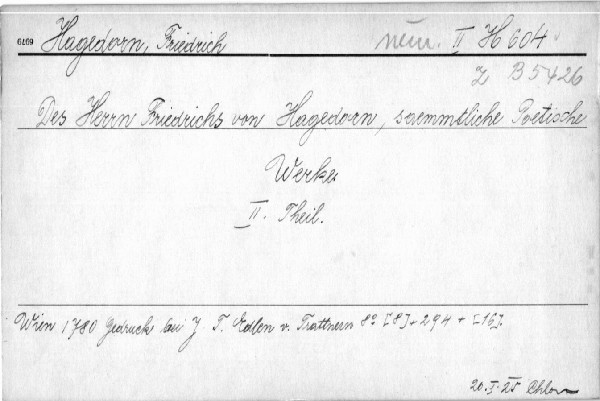 6469 Hagedorn, Friedrich neu. II H 604
Z B 5426
Des Herrn Friedrichs von Hagedorn, saemmtliche Poetische
Werke
II. Theil.
Wien 1780 Gedruck bei J T. Edlen v. Trattnern 8° [8] + 294 + [16].
20.I.25